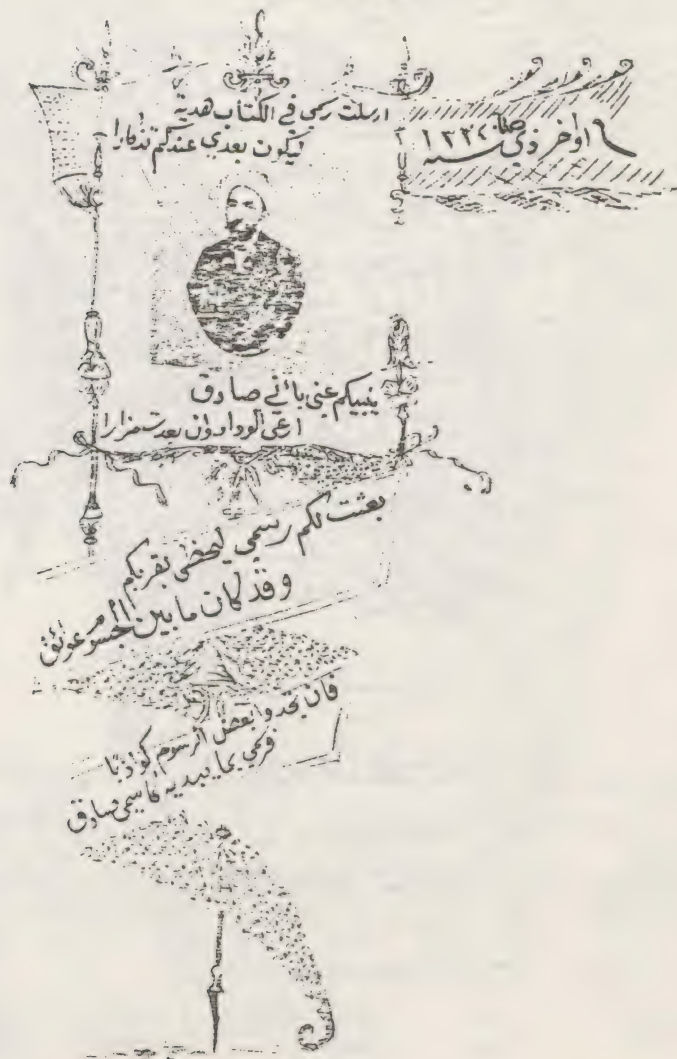 ارسلت رسمي في الكتاب هدية
ليكون بعدي عندكم تذكارا
اواخر ذي سنة ١٣٢٤
ينبيكم عني بأني صادق
ارعى الوداد وان بعدت مزارا
بعثت لكم رسمي ليحضى بقربكم
وقد كان ما بين الجسوم عوائق
فان تجدوا بعض الرسوم كواذبا
فرسمي بما يبديه كاسمي صادق